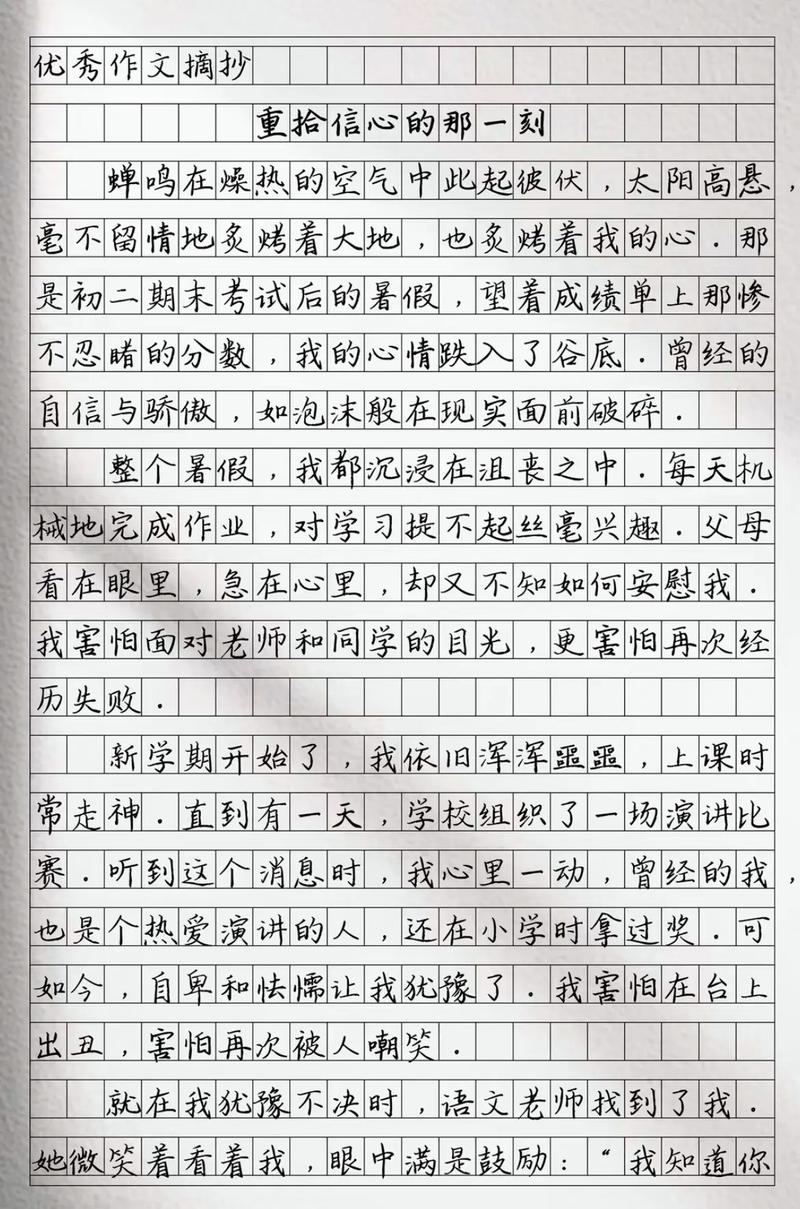 优秀作文摘抄
重拾信心的那一刻
蝉鸣在燥热的空气中此起彼伏，太阳高悬，
毫不留情地炙烤着大地，也炙烤着我的心．那
是初二期末考试后的暑假，望着成绩单上那惨
不忍睹的分数，我的心情跌入了谷底．曾经的
自信与骄傲，如泡沫般在现实面前破碎．
整个暑假，我都沉浸在沮丧之中．每天机
械地完成作业，对学习提不起丝毫兴趣．父母
看在眼里，急在心里，却又不知如何安慰我．
我害怕面对老师和同学的目光，更害怕再次经
历失败．
新学期开始了，我依旧浑浑噩噩，上课时
常走神．直到有一天，学校组织了一场演讲比
赛．听到这个消息时，我心里一动，曾经的我，
也是个热爱演讲的人，还在小学时拿过奖．可
如今，自卑和怯懦让我犹豫了．我害怕在台上
出丑，害怕再次被人嘲笑．
就在我犹豫不决时，语文老师找到了我．
她微笑着看着我，眼中满是鼓励：“我知道你